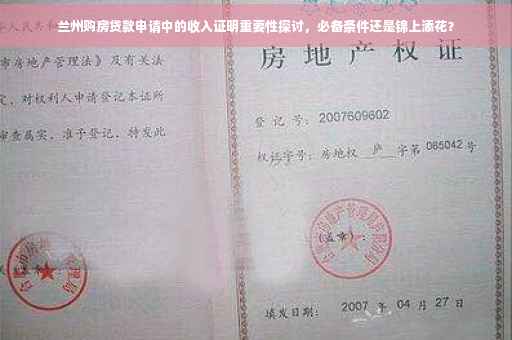 兰州购房贷款申请中的收入证明重要性探讨，必备条件还是锦上添花？
华人民共和国
市房地产管理法》及有关法
定，对权利人申请登记本证所
审查属实，准予登记，特发此
房地产权证
登记号：2007609602
权证字号：房地权 庐 字第 065042 号
（盖章）：
填发日期：2007 年 04 月 27 日